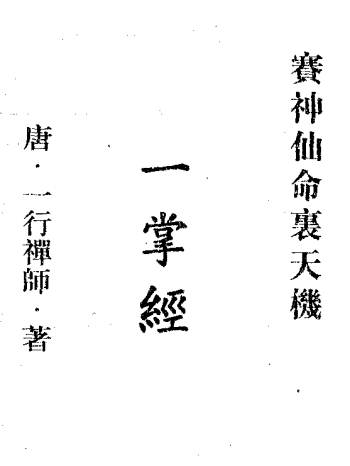 賽神仙命裏天機
一掌經
唐·一行禪師·著